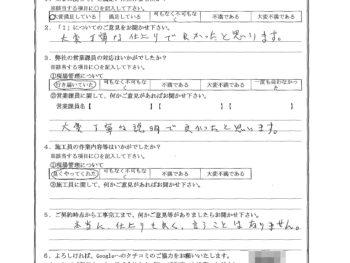 ※該当する項目に○を記入して下さい。
大変満足している 満足している 可もなく不可もなく 不満である 大変不満である
2.「1」についてのご意見をお聞かせ下さい。
大変丁寧な仕上りで良かったと思います。
3. 弊社の営業課員の対応はいかがでしたか？
※該当する項目に○を記入して下さい。
①現場管理について
行き届いていた 可もなく不可もなく 不満である 大変不満である 一度も会わなかった
②営業課員に関して、何かご意見があればお聞かせ下さい
営業課員名【 】 【 】
大変丁寧な説明で良かったと思います。
4. 施工員の作業内容等はいかがでしたか？
※該当する項目に○を記入して下さい。
①現場管理について
良くやってくれた 可もなく不可もなく 不満である 大変不満である
②施工員に関して、何かご意見があればお聞かせ下さい。
5. ご契約時点から工事完工まで、何かご意見等がありましたらお聞かせ下さい。
本当に、仕上りも良く、言うことはありません。
6. よろしければ、Googleへのクチコミのご協力をお願いいたします。